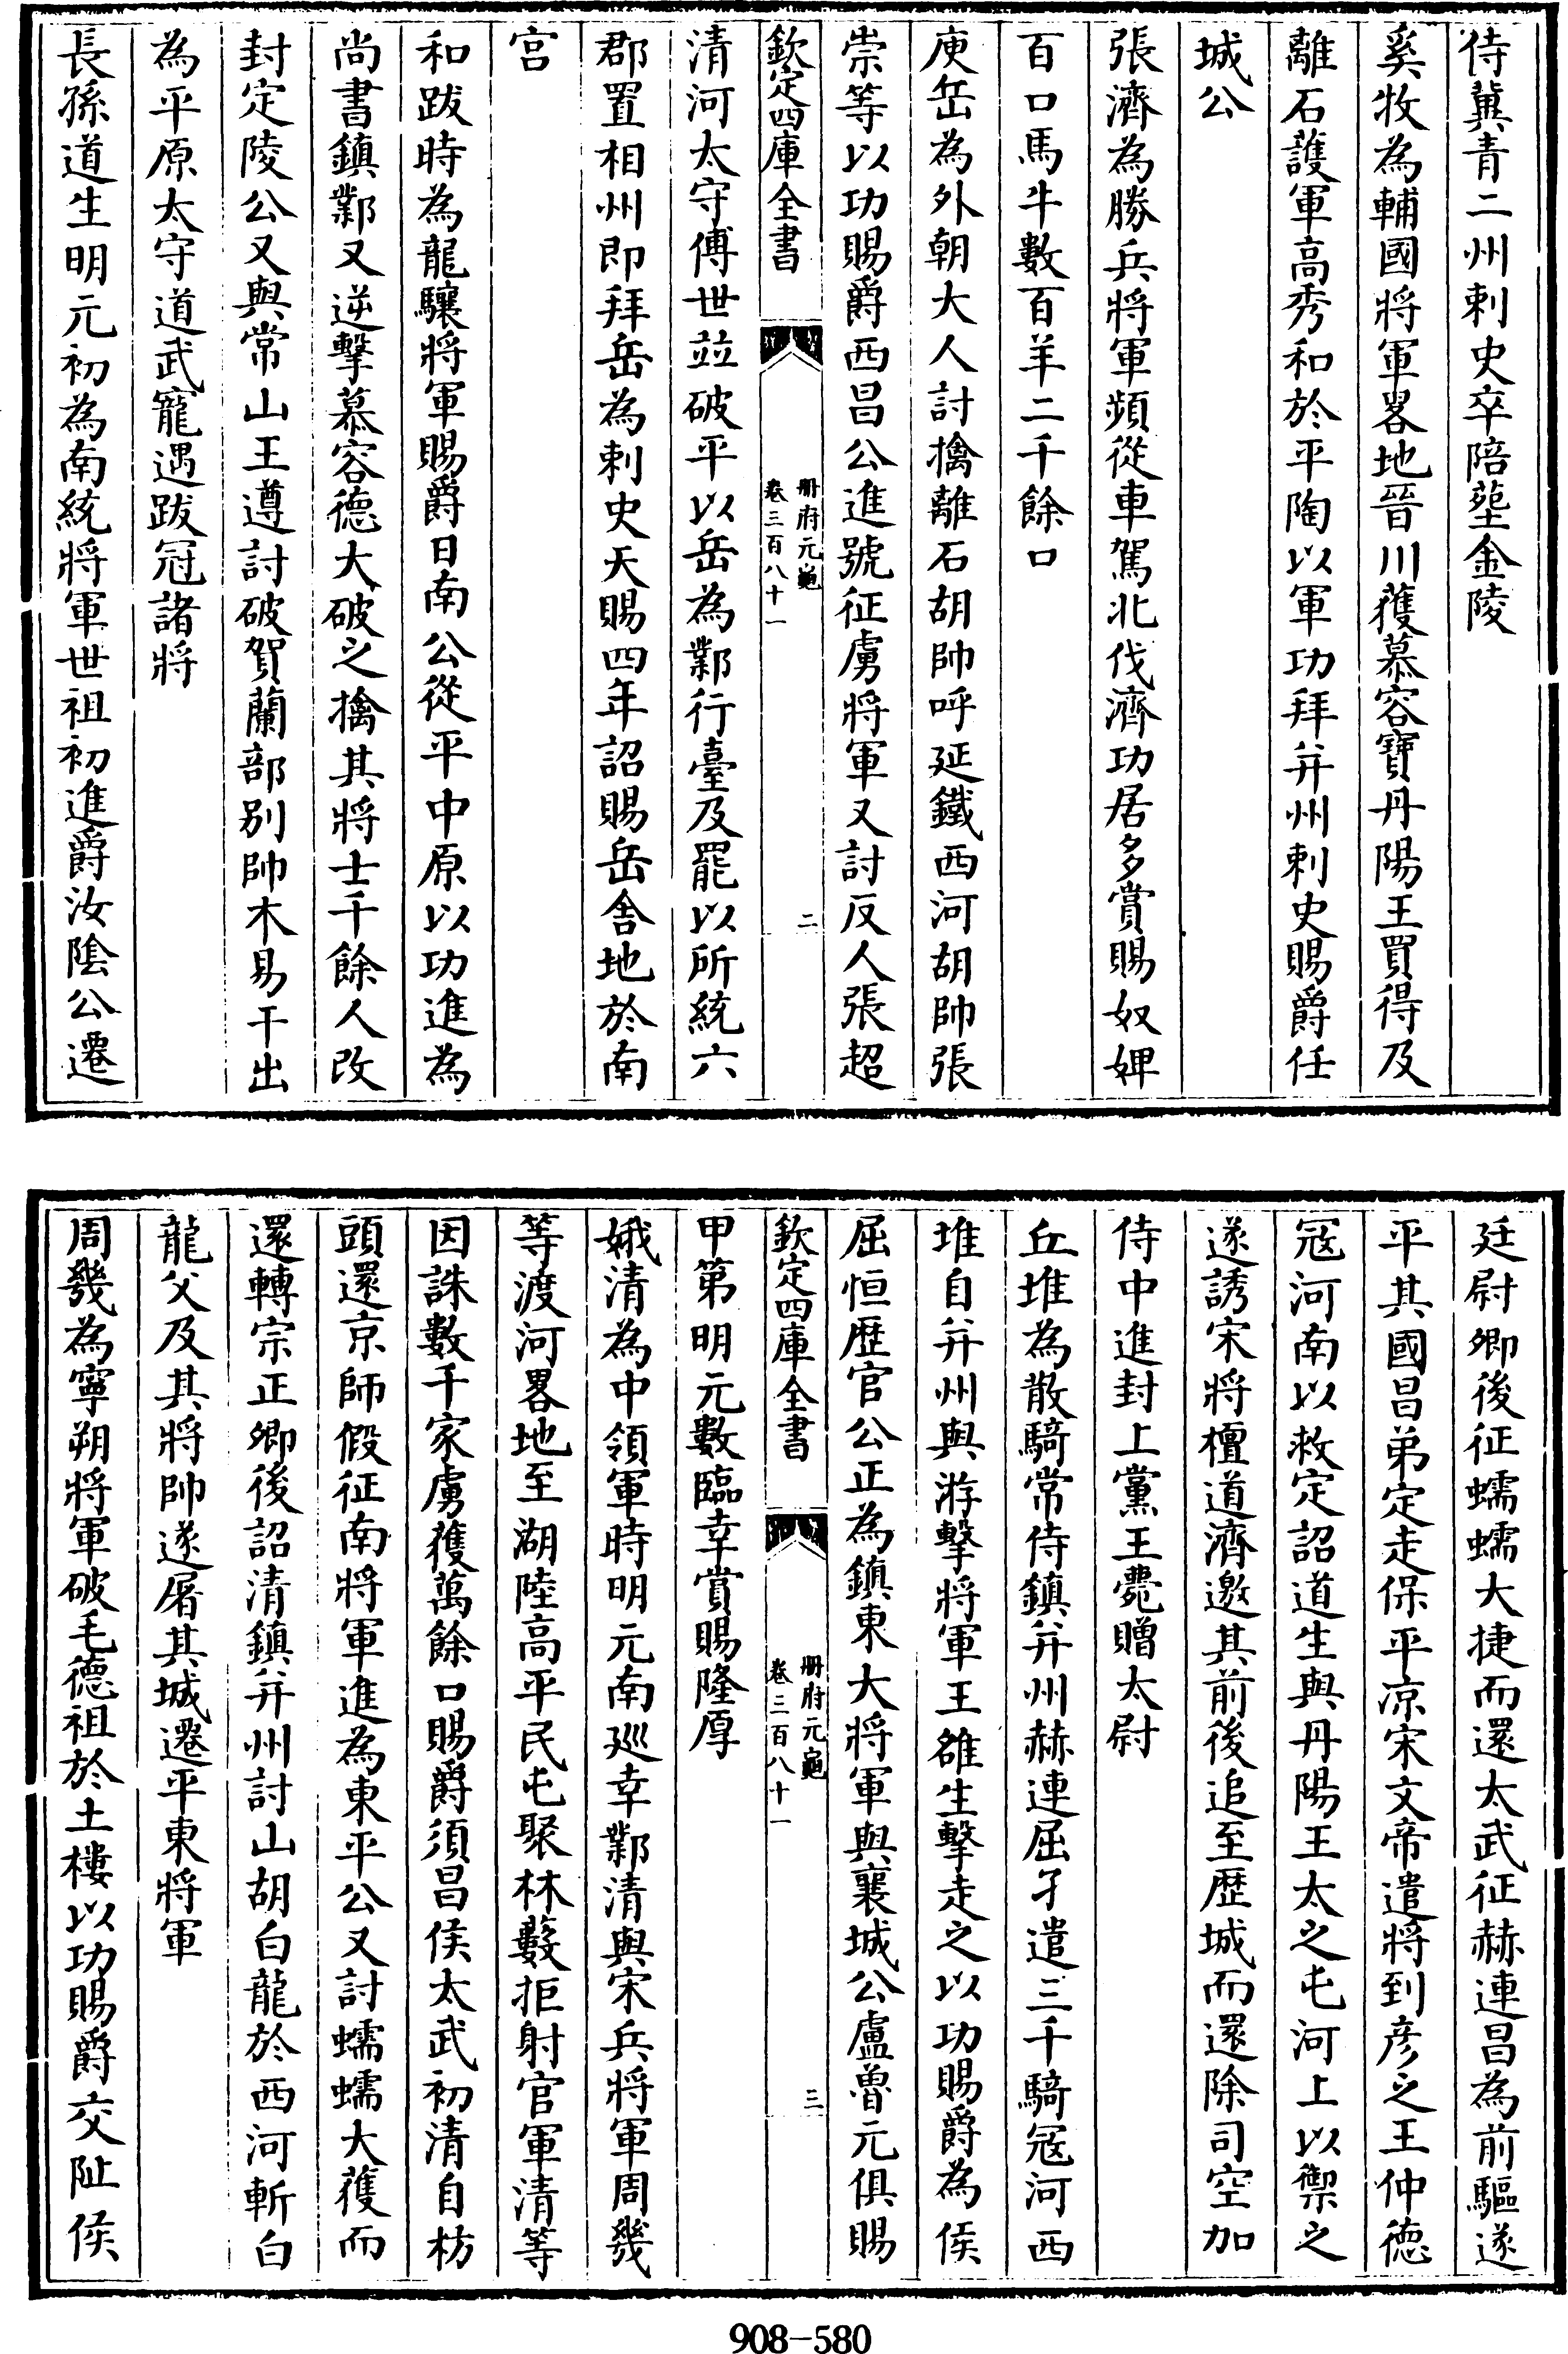 侍冀青二州刺史卒陪塟金陵
奚牧為輔國將軍畧地晉川獲慕容寶丹陽王買得及
離石護軍高秀和於平陶以軍功拜并州刺史賜爵任
城公
張濟為勝兵將軍頻從車駕北伐濟功居多賞賜奴婢
百口馬牛數百羊二千餘口
庾岳為外朝大人討擒離石胡帥呼延鐵西河胡帥張
崇等以功賜爵西昌公進號征虜將軍又討反人張超
欽定四庫全書
册府元龜
卷三百八十一
二
清河太守傅世並破平以岳為鄴行臺及罷以所統六
郡置相州即拜岳為刺史天賜四年詔賜岳舍地於南
宫
和跋時為龍驤將軍賜爵日南公從平中原以功進為
尚書鎮鄴又逆擊慕容德大破之擒其將士千餘人改
封定陵公又與常山王遵討破賀蘭部别帥木易干出
為平原太守道武寵遇跋冠諸將
長孫道生明元初為南統將軍世祖初進爵汝隂公遷
廷尉卿後征蠕蠕大捷而還太武征赫連昌為前驅遂
平其國昌弟定走保平凉宋文帝遣將到彦之王仲德
冦河南以救定詔道生與丹陽王太之屯河上以禦之
遂誘宋將檀道濟邀其前後追至歴城而還除司空加
侍中進封上黨王薨贈太尉
丘堆為散騎常侍鎮并州赫連屈孑遣三千騎冦河西
堆自并州與㳺擊將軍王雒生擊走之以功賜爵為侯
屈恒歴官公正為鎮東大將軍與襄城公盧魯元俱賜
欽定四庫全書
册府元龜
卷三百八十一
三
甲第明元數臨幸賞賜隆厚
娥清為中領軍時明元南廵幸鄴清與宋兵將軍周幾
等渡河畧地至湖陸高平民屯聚林藪拒射官軍清等
因誅數千家虜獲萬餘口賜爵須昌侯太武初清自枋
頭還京師假征南將軍進為東平公又討蠕蠕大獲而
還轉宗正卿後詔清鎮并州討山胡白龍於西河斬白
龍父及其將帥遂屠其城遷平東將軍
周幾為寧朔將軍破毛德祖於土樓以功賜爵交阯侯
908-580